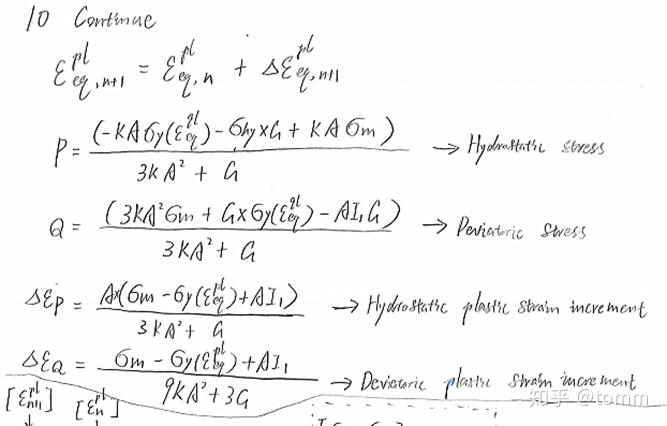 10 Continue
ε^{pl}_{eq,n+1} = ε^{pl}_{eq,n} + Δε^{pl}_{eq,n+1}
P = (-KAσy(ε^{pl}_{eq}) - σhy×G + KAσm) / (3KA² + G) → Hydrostatic stress
Q = (3KA²σm + G×σy(ε^{pl}_{eq}) - AI₁G) / (3KA² + G) → Deviatoric stress
ΔεP = A×(σm - σy(ε^{pl}_{eq}) + AI₁) / (3KA² + G) → Hydrostatic plastic strain increment
ΔεQ = (σm - σy(ε^{pl}_{eq}) + AI₁) / (9KA² + 3G) → Deviatoric plastic strain increment
[ε^{pl}_{n+1}] [ε^{pl}_{n}]
↓ ↓
知乎 @tomm